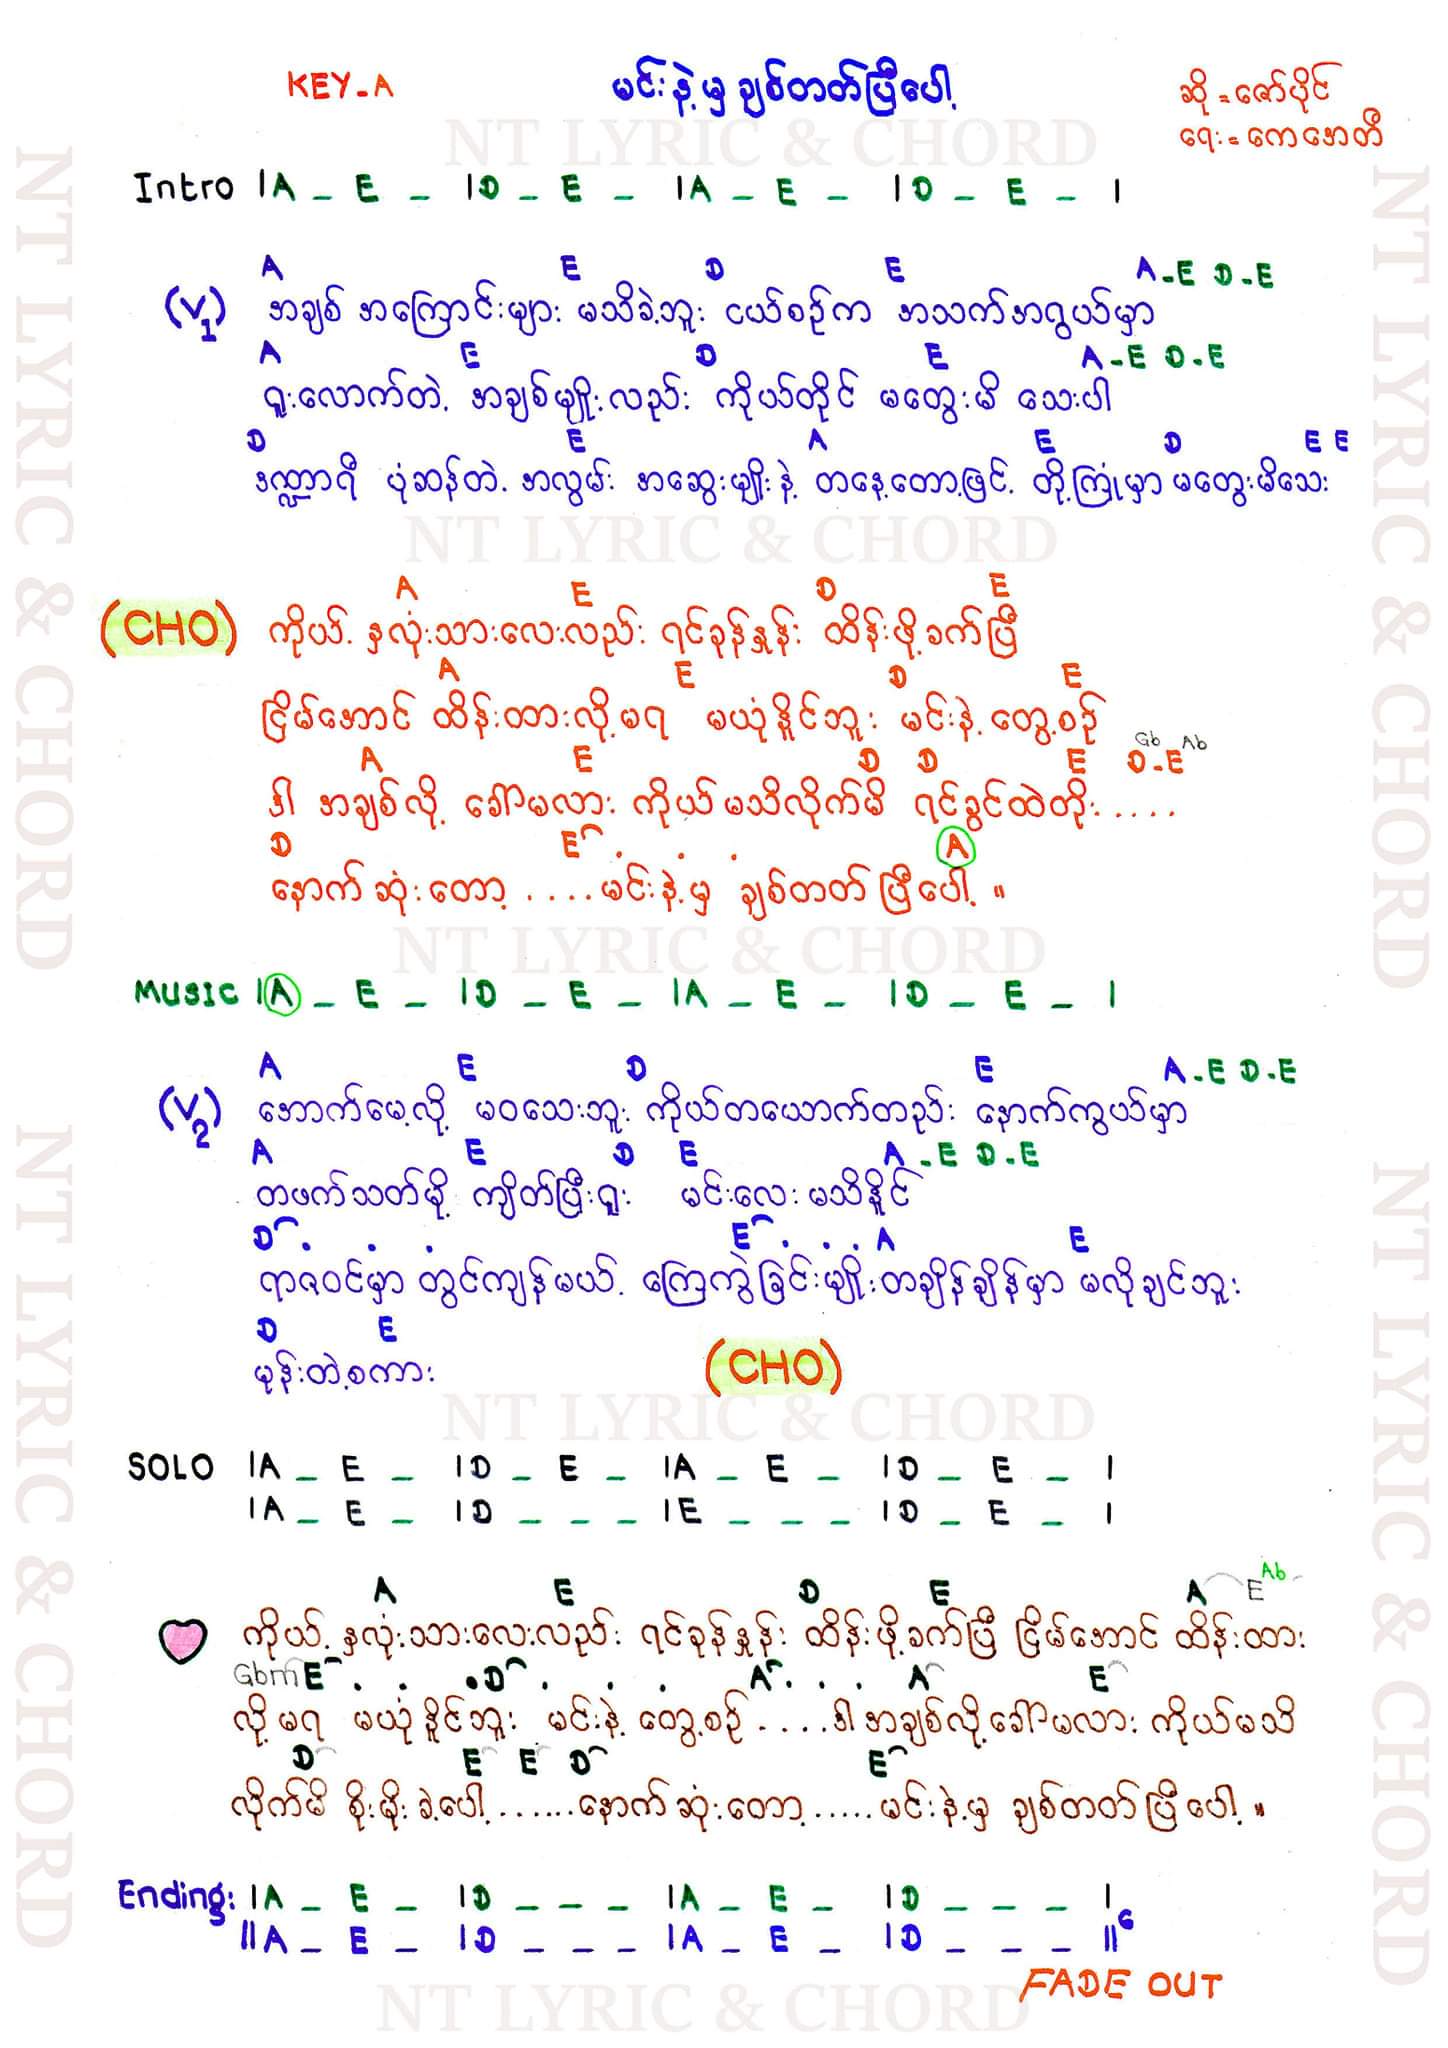 KEY-A
မင်းနဲ့မှ ချစ်တတ်ပြီပေါ့
ဆို = ဇော်ပိုင်
ရေး = ကေအေတီ
NT LYRIC & CHORD
Intro |A _ E _ |D _ E _ |A _ E _ |D _ E _ |
A E D E A-E D-E
(V1) အချစ် အကြောင်းများ မသိခဲ့ဘူး ငယ်စဉ်က အသက်အရွယ်မှာ
A E D E A-E D-E
ရူးလောက်တဲ့ အချစ်မျိုးလည်း ကိုယ်တိုင် မတွေးမိ သေးပါ
D E A E D E E
ဒဏ္ဍာရီ ပုံဆန်တဲ့ အလွမ်း အဆွေးမျိုးနဲ့ တနေ့တော့ဖြင့် တို့ကြုံမှာ မတွေးမိသေး
NT LYRIC & CHORD
A E D E
(CHO) ကိုယ့် နှလုံးသားလေးလည်း ရင်ခုန်နှုန်း ထိန်းဖို့ခက်ပြီ
A E D E
ငြိမ်အောင် ထိန်းထားလို့မရ မယုံနိုင်ဘူး မင်းနဲ့ တွေ့စဉ်
A E D D E D-E Gb Ab
ဒါ အချစ်လို့ ခေါ်မလား ကိုယ်မသိလိုက်မိ ရင်ခွင်ထဲတိုး ....
D E . . . A
နောက်ဆုံးတော့ .... မင်းနဲ့မှ ချစ်တတ်ပြီပေါ့ ။
NT LYRIC & CHORD
MUSIC |A _ E _ |D _ E _ |A _ E _ |D _ E _ |
A E D E A-E D-E
(V2) အောက်မေ့လို့ မဝသေးဘူး ကိုယ်တယောက်တည်း နောက်ကွယ်မှာ
A E D E A-E D-E
တဖက်သတ်မို့ ကျိတ်ပြီးရူး မင်းလေးမသိနိုင်
D . . . E . . . A E
ရာဇဝင်မှာ တွင်ကျန်မယ့် ကြေကွဲခြင်းမျိုး တချိန်ချိန်မှာ မလိုချင်ဘူး
D E
မုန်းတဲ့စကား (CHO)
NT LYRIC & CHORD
SOLO |A _ E _ |D _ E _ |A _ E _ |D _ E _ |
|A _ E _ |D _ _ _ |E _ _ _ |D _ E _ |
A E D E A E Ab
ကိုယ့် နှလုံးသားလေးလည်း ရင်ခုန်နှုန်း ထိန်းဖို့ခက်ပြီ ငြိမ်အောင် ထိန်းထား
Gbm E . . . D . . . A . . . A E
လို့မရ မယုံနိုင်ဘူး မင်းနဲ့ တွေ့စဉ် .... ဒါအချစ်လို့ခေါ်မလား ကိုယ်မသိ
D E E D E
လိုက်မိ စိုးမိုးခဲ့ပေါ့ ....... နောက်ဆုံးတော့ ...... မင်းနဲ့မှ ချစ်တတ်ပြီပေါ့ ။
Ending: |A _ E _ |D _ _ _ |A _ E _ |D _ _ _ |
||A _ E _ |D _ _ _ |A _ E _ |D _ _ _ ||6
FADE OUT
NT LYRIC & CHORD
NT LYRIC & CHORD
NT LYRIC & CHORD
NT LYRIC & CHORD
NT LYRIC & CHORD